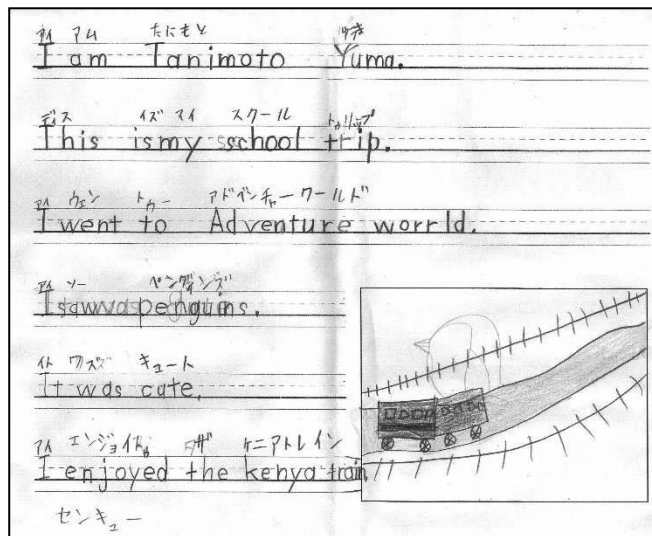 アイ アム たにもと ゆま
I am Tanimoto Yuma.
ディス イズ マイ スクール トゥリップ
This is my school trip.
アイ ウェン トゥー アドベンチャーワールド
I went to Adventure worrld.
アイ ソー ペンギンズ
I saw penguins.
イト ワズ キュート
It was cute.
アイ エンジョイドゥ ザ ケニアトレイン
I enjoyed the kenya train.
センキュー